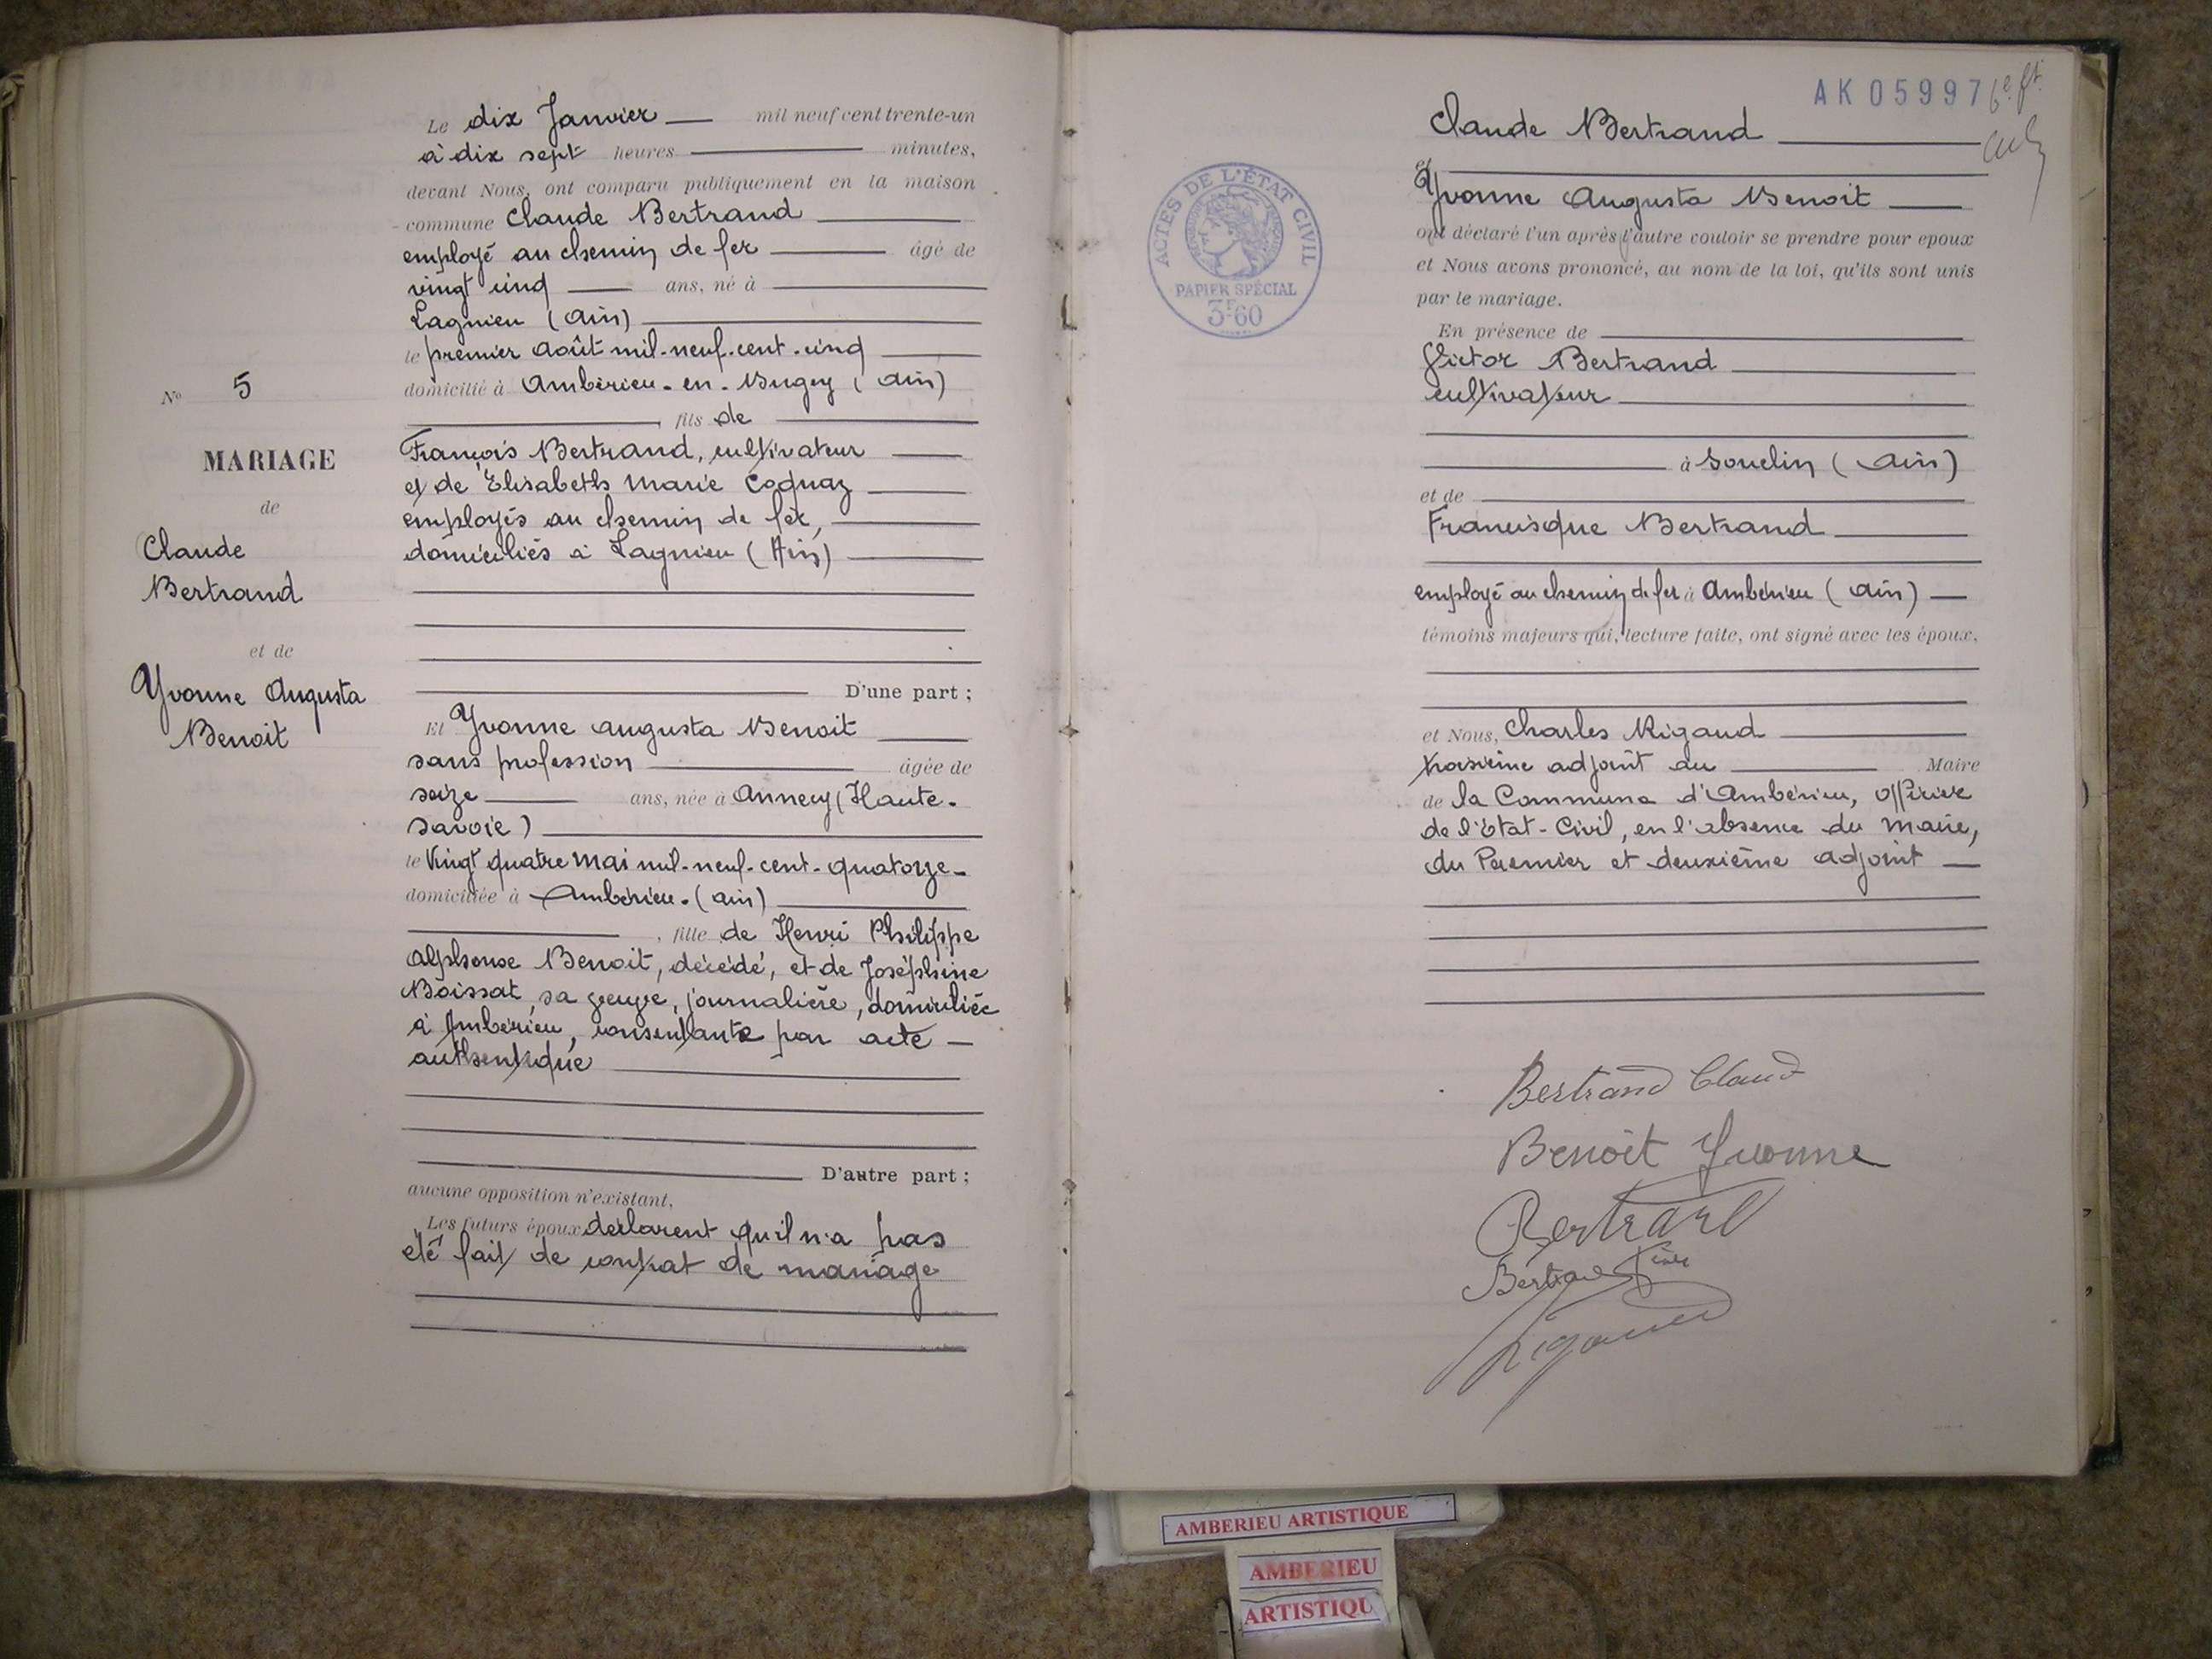 Le dix Janvier mil neuf cent trente-un
à dix sept heures minutes,
devant Nous, ont comparu publiquement en la maison
commune Claude Bertrand
employé au chemin de fer âgé de
vingt cinq ans, né à
Lagnieu (Ain)
le premier Août mil-neuf-cent-cinq
domicilié à Ambérieu-en-Bugey (Ain)
, fils de
François Bertrand, cultivateur
et de Elisabeth Marie Coquaz
employés au chemin de fer,
domiciliés à Lagnieu (Ain)
D'une part ;
Et Yvonne Augusta Benoit
sans profession âgée de
seize ans, née à Annecy (Haute-
Savoie)
le Vingt quatre Mai mil-neuf-cent-quatorze-
domiciliée à Ambérieu-(Ain)
, fille de Henri Philippe
Alphonse Benoit, décédé, et de Joséphine
Boissat, sa veuve, journalière, domiciliée
à Ambérieu, consentante par acte
authentique
D'autre part ;
aucune opposition n'existant,
Les futurs époux déclarent qu'il n'a pas
été fait de contrat de mariage
No 5
MARIAGE
de
Claude
Bertrand
et de
Yvonne Augusta
Benoit
AK 05997
6e ft
Claude Bertrand
et
Yvonne Augusta Benoit
ont déclaré l'un après l'autre vouloir se prendre pour époux
et Nous avons prononcé, au nom de la loi, qu'ils sont unis
par le mariage.
En présence de
Victor Bertrand
cultivateur
à Souclin (Ain)
et de
Francisque Bertrand
employé au chemin de fer à Ambérieu (Ain)
témoins majeurs qui, lecture faite, ont signé avec les époux,
et Nous, Charles Rigaud
troisième adjoint au Maire
de la Commune d'Ambérieu, Officier
de l'Etat-Civil, en l'absence du Maire,
du Premier et deuxième adjoint
Bertrand Claud
Benoit Yvonne
Bertrand
Bertrand
Rigaud
ACTES DE L'ÉTAT CIVIL
PAPIER SPÉCIAL
3F60
AMBERIEU ARTISTIQUE
AMBERIEU
ARTISTIQU